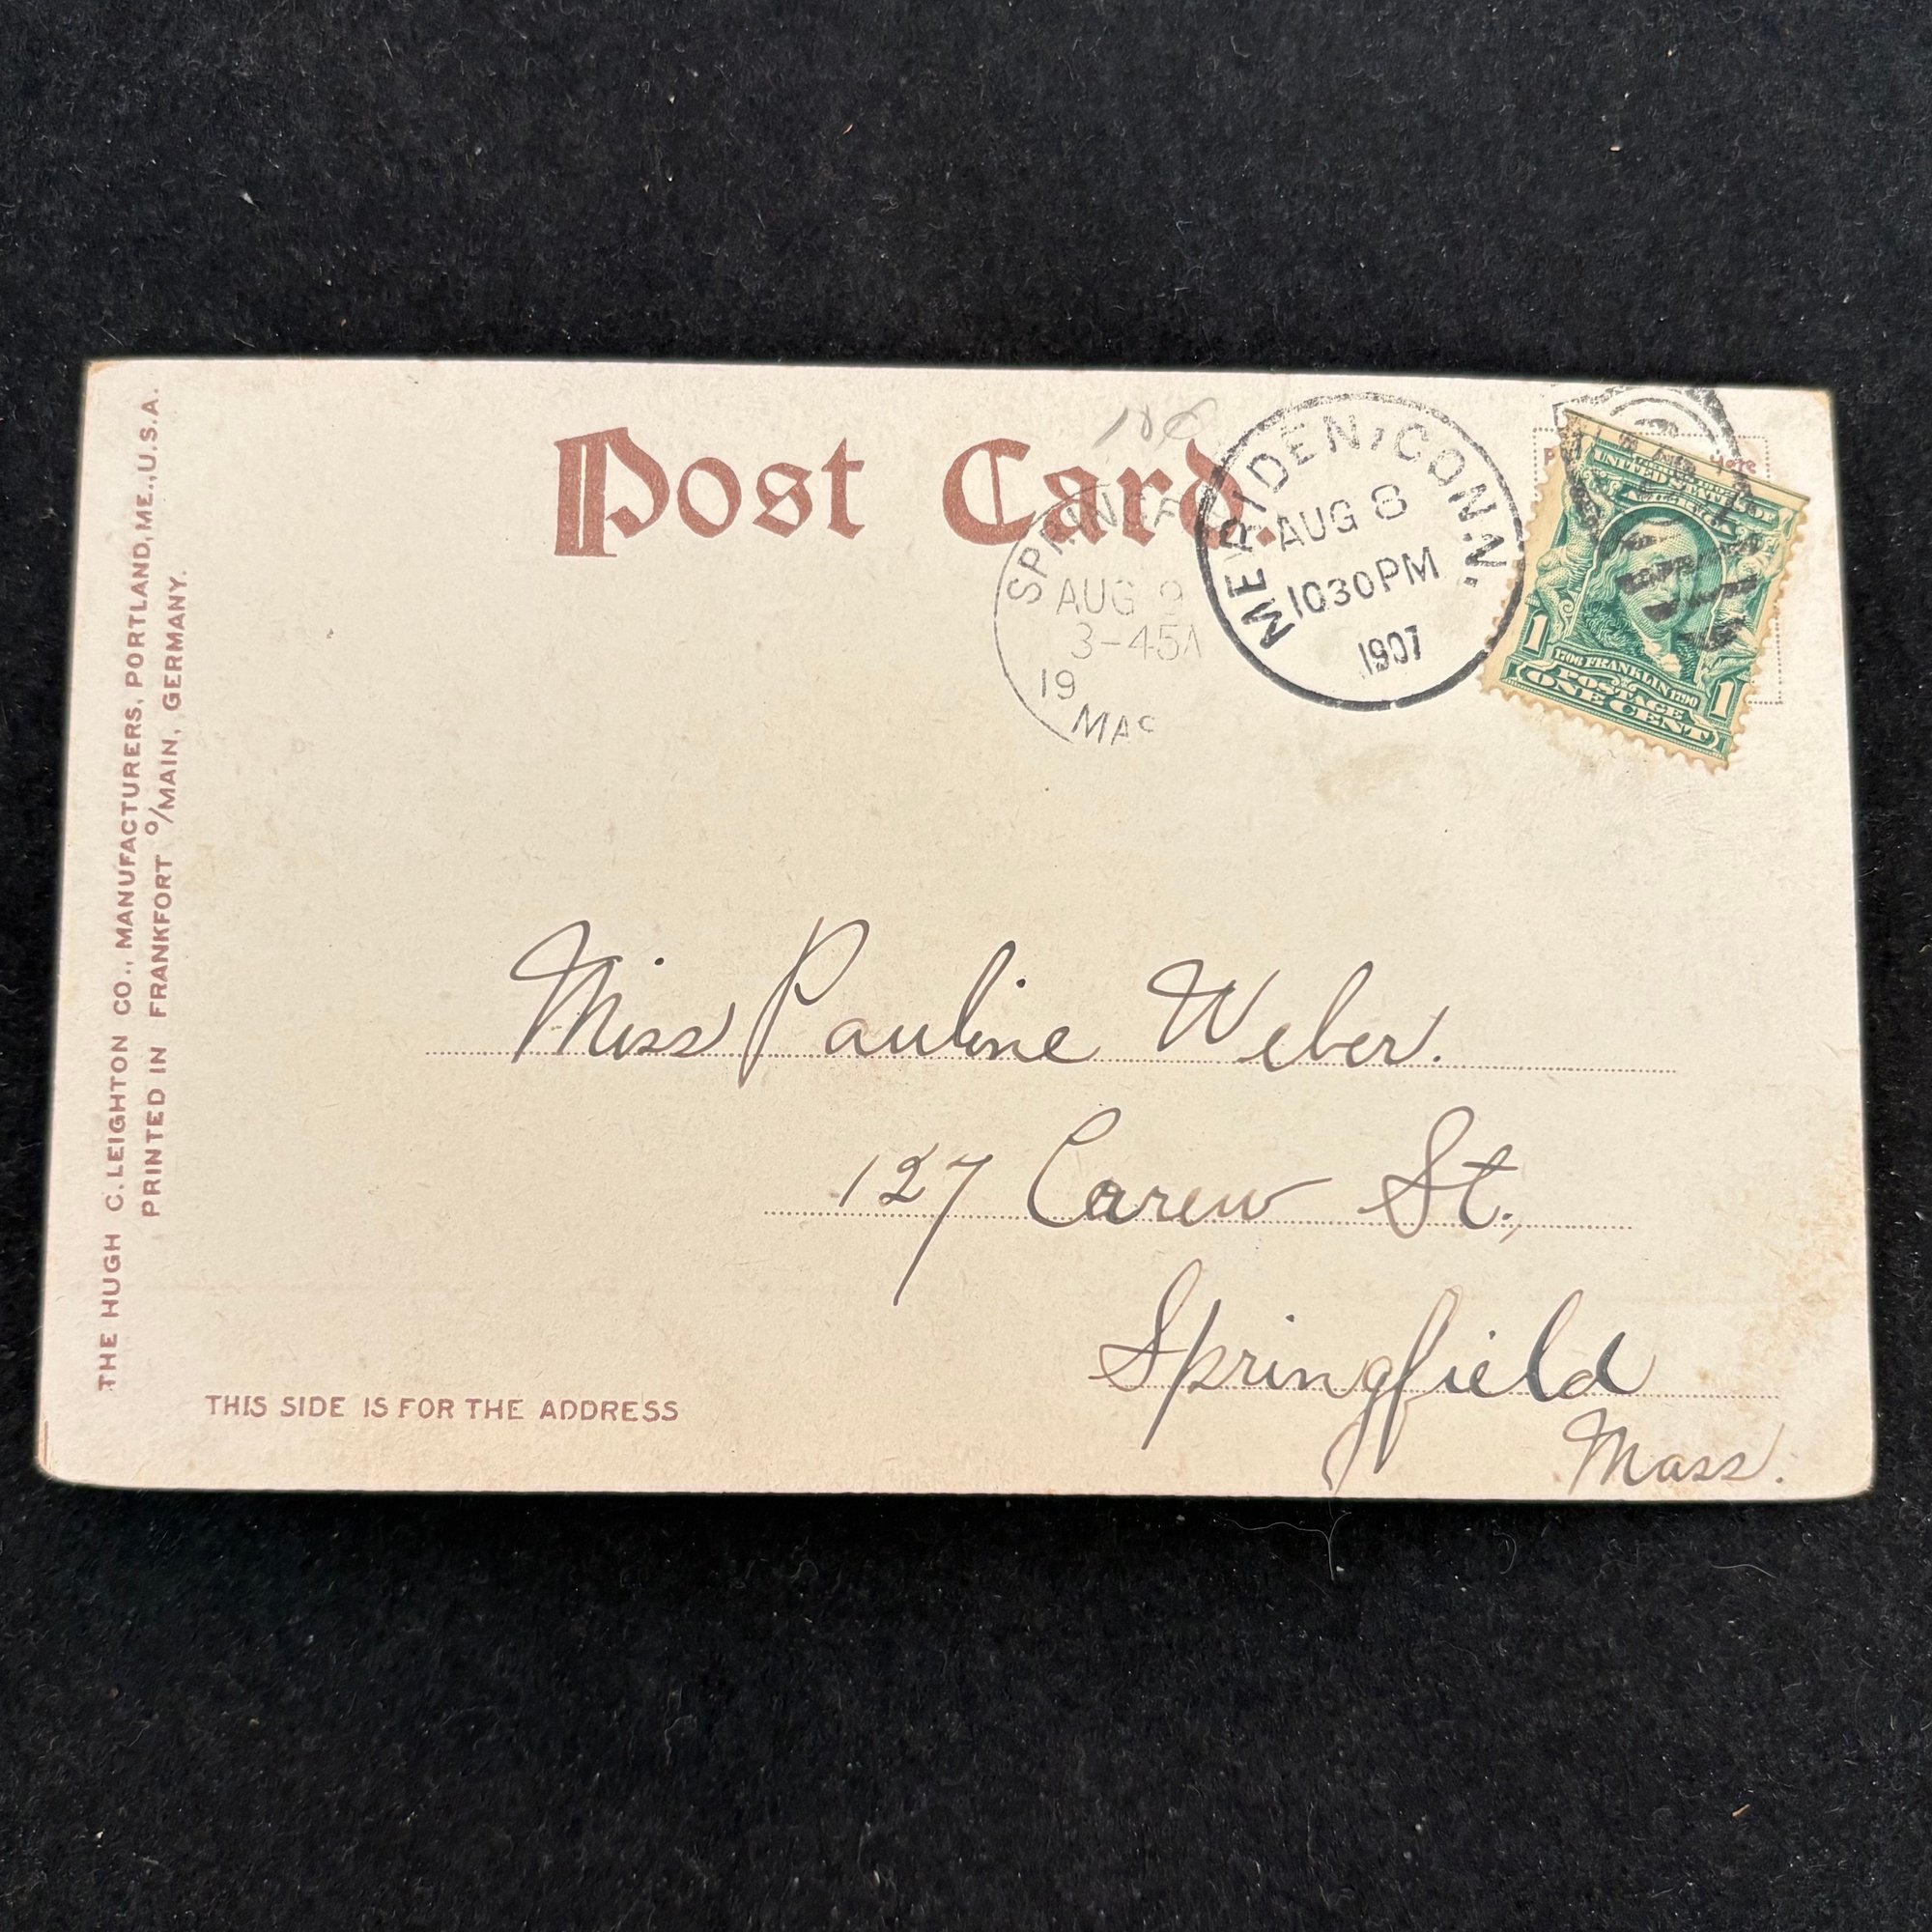 THE HUGH C. LEIGHTON CO., MANUFACTURERS, PORTLAND, ME., U.S.A.
PRINTED IN FRANKFORT o/MAIN, GERMANY.
Post Card.
SPRINGF
AUG 9
3-45A
19
MAS
MERIDEN, CONN.
AUG 8
1030PM
1907
Here
UNITED STATES OF
AMERICA
1706 FRANKLIN 1790
POSTAGE
1 ONE CENT 1
Miss Pauline Weber.
127 Carew St.,
Springfield
Mass.
THIS SIDE IS FOR THE ADDRESS